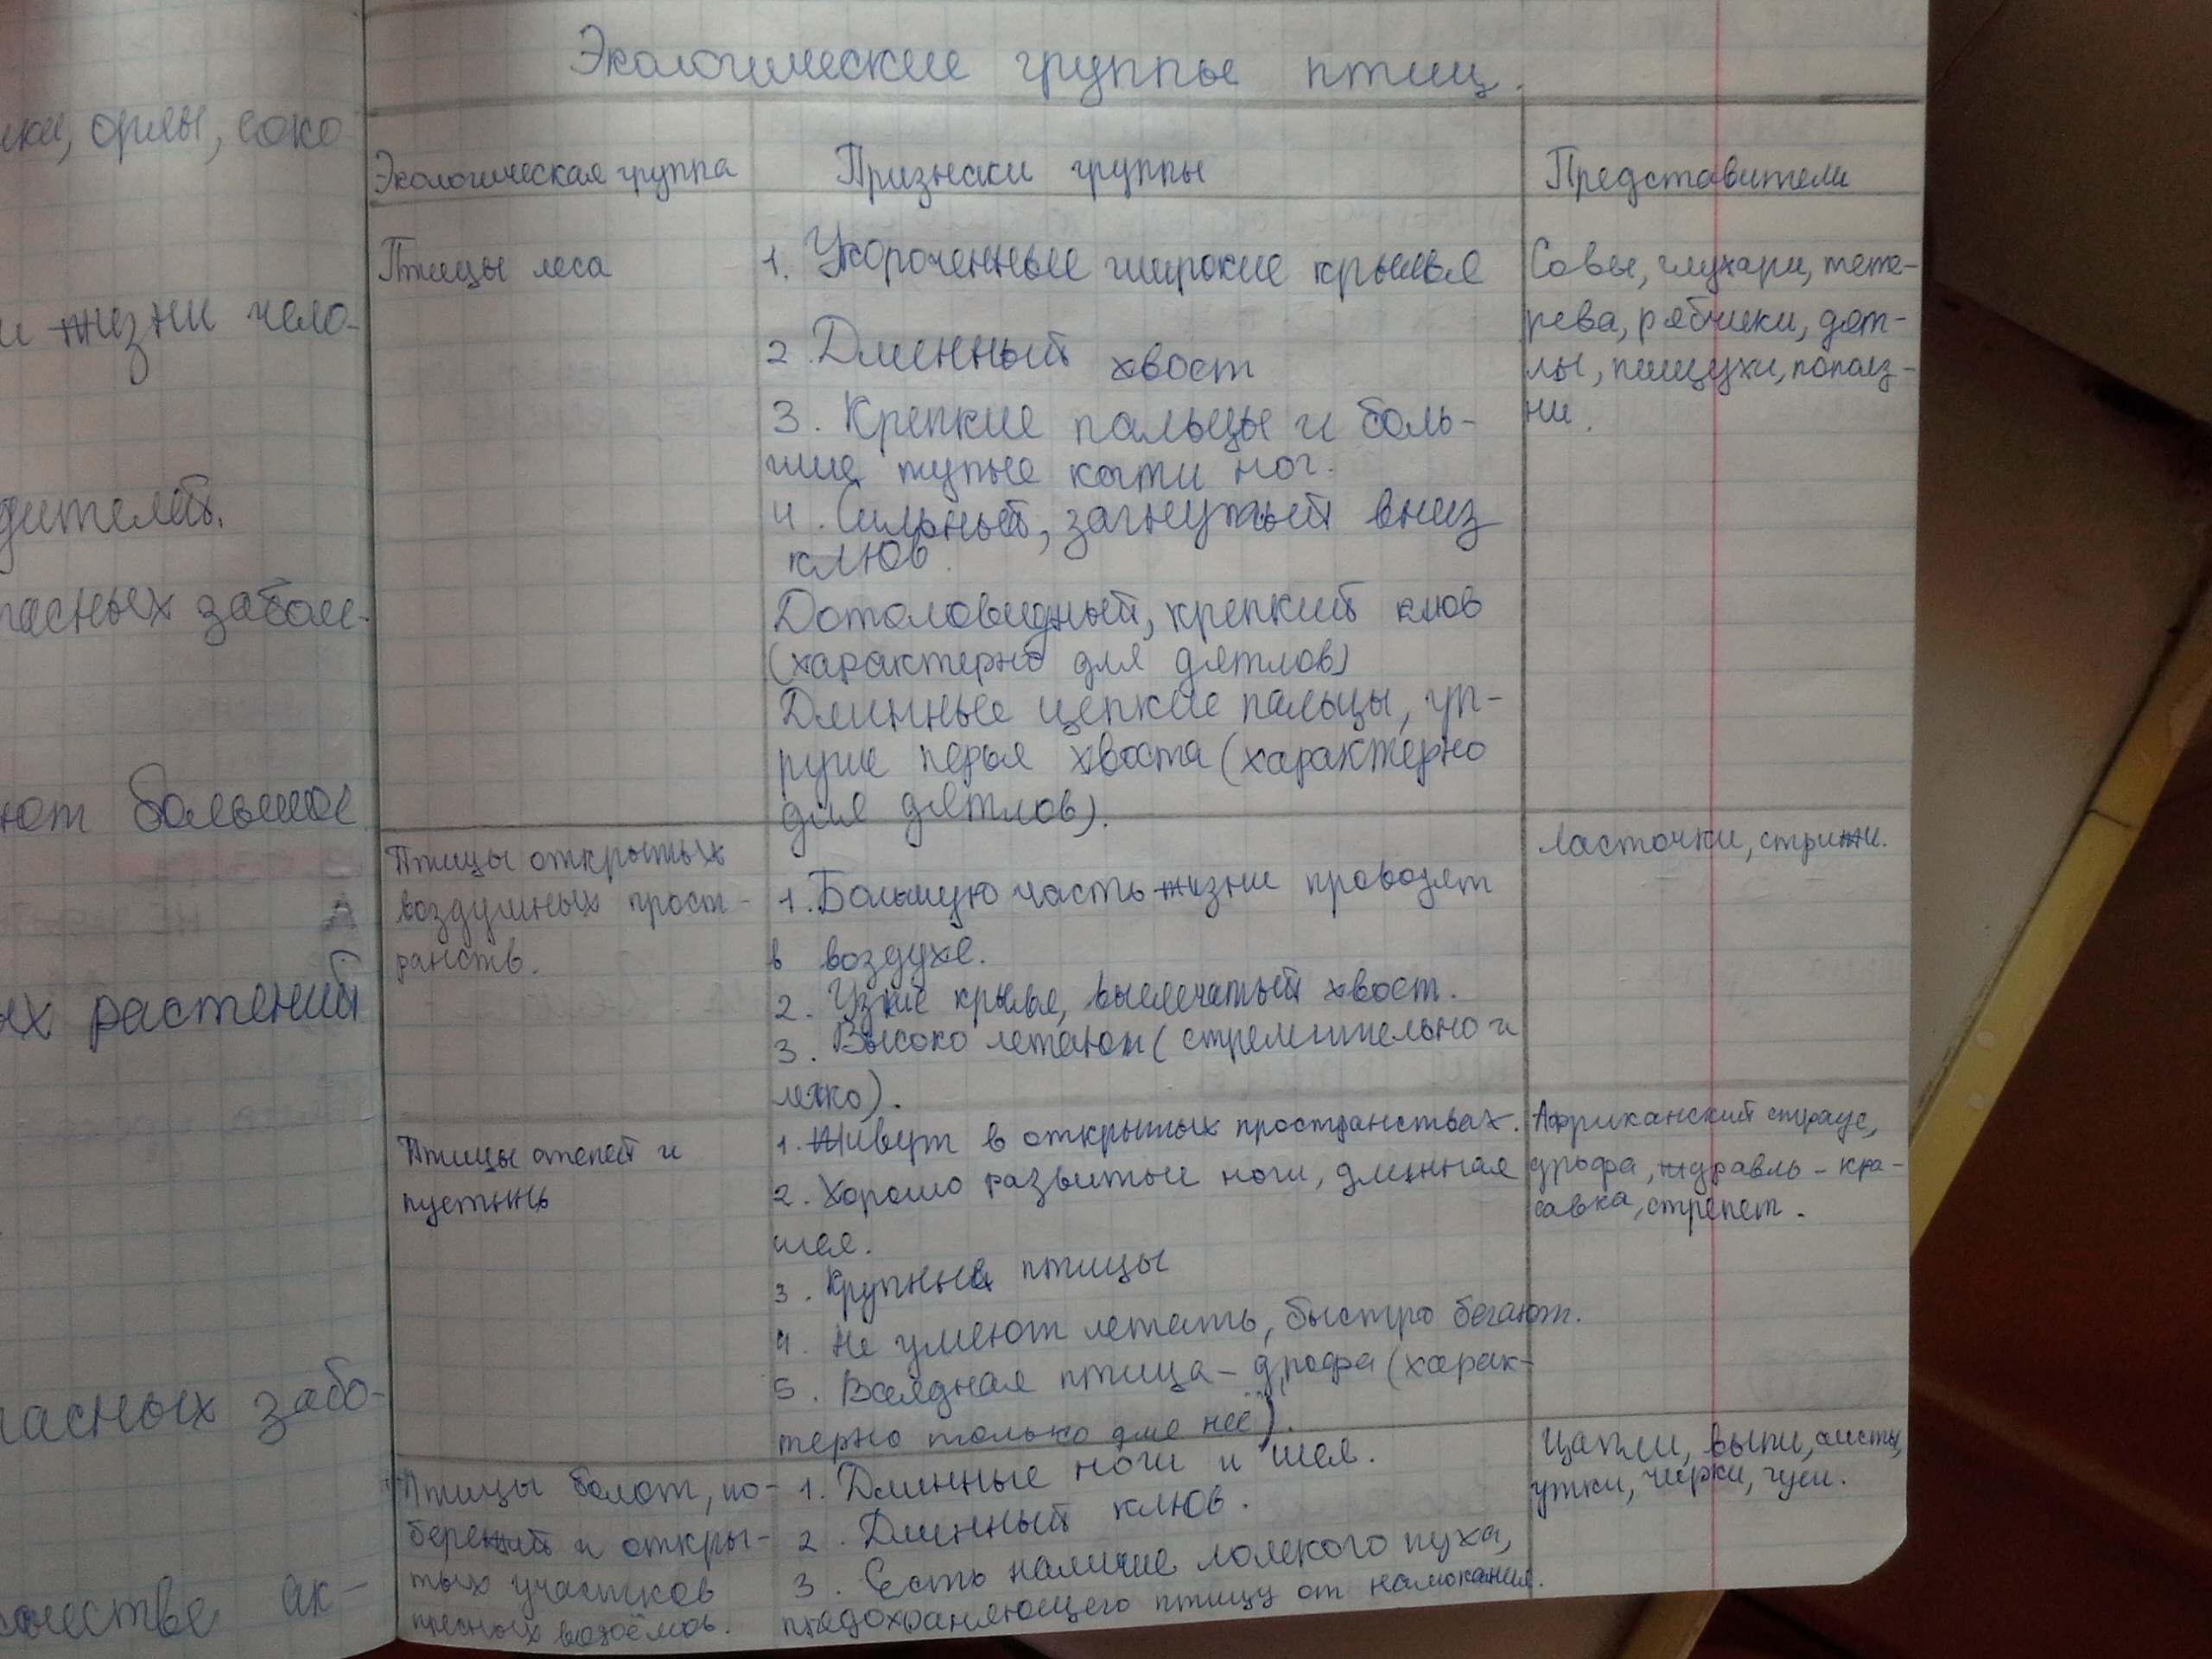 Экологические группы птиц.
Экологическая группа
Признаки группы
Представители
Птицы леса
1. Укороченные широкие крылья
2. Длинный хвост
3. Крепкие пальцы и боль-
шие тупые когти ног.
4. Сильный, загнутый вниз
клюв.
Дотоловидный, крепкий клюв
(характерно для дятлов)
Длинные цепкие пальцы, уп-
ругие перья хвоста (характерно
для дятлов).
Совы, глухари, тете-
рева, рябчики, дят-
лы, пищухи, поползни-
ни.
Птицы открытых
воздушных прост-
ранств.
1. Большую часть жизни проводят
в воздухе.
2. Узкие крылья, выемчатый хвост.
3. Высоко летают (стремительно и
легко).
Ласточки, стрижи.
Птицы степей и
пустынь
1. Живут в открытых пространствах.
2. Хорошо развитые ноги, длинная
шея.
3. Крупные птицы
4. Не умеют летать, быстро бегают.
5. Всеядная птица - дрофа (харак-
терно только для неё).
Африканский страус,
дрофа, журавль - кра-
савка, стрепет.
Птицы болот, по-
бережий и откры-
тых участков
пресных водоёмов.
1. Длинные ноги и шея.
2. Длинный клюв.
3. Есть наличие мягкого пуха,
предохраняющего птицу от намокания.
Цапли, выпи, аисты,
утки, чирки, гуси.
орлы, соко-
и жизни чело-
дителей.
забол-
ют большое
растений
забо-
ак-